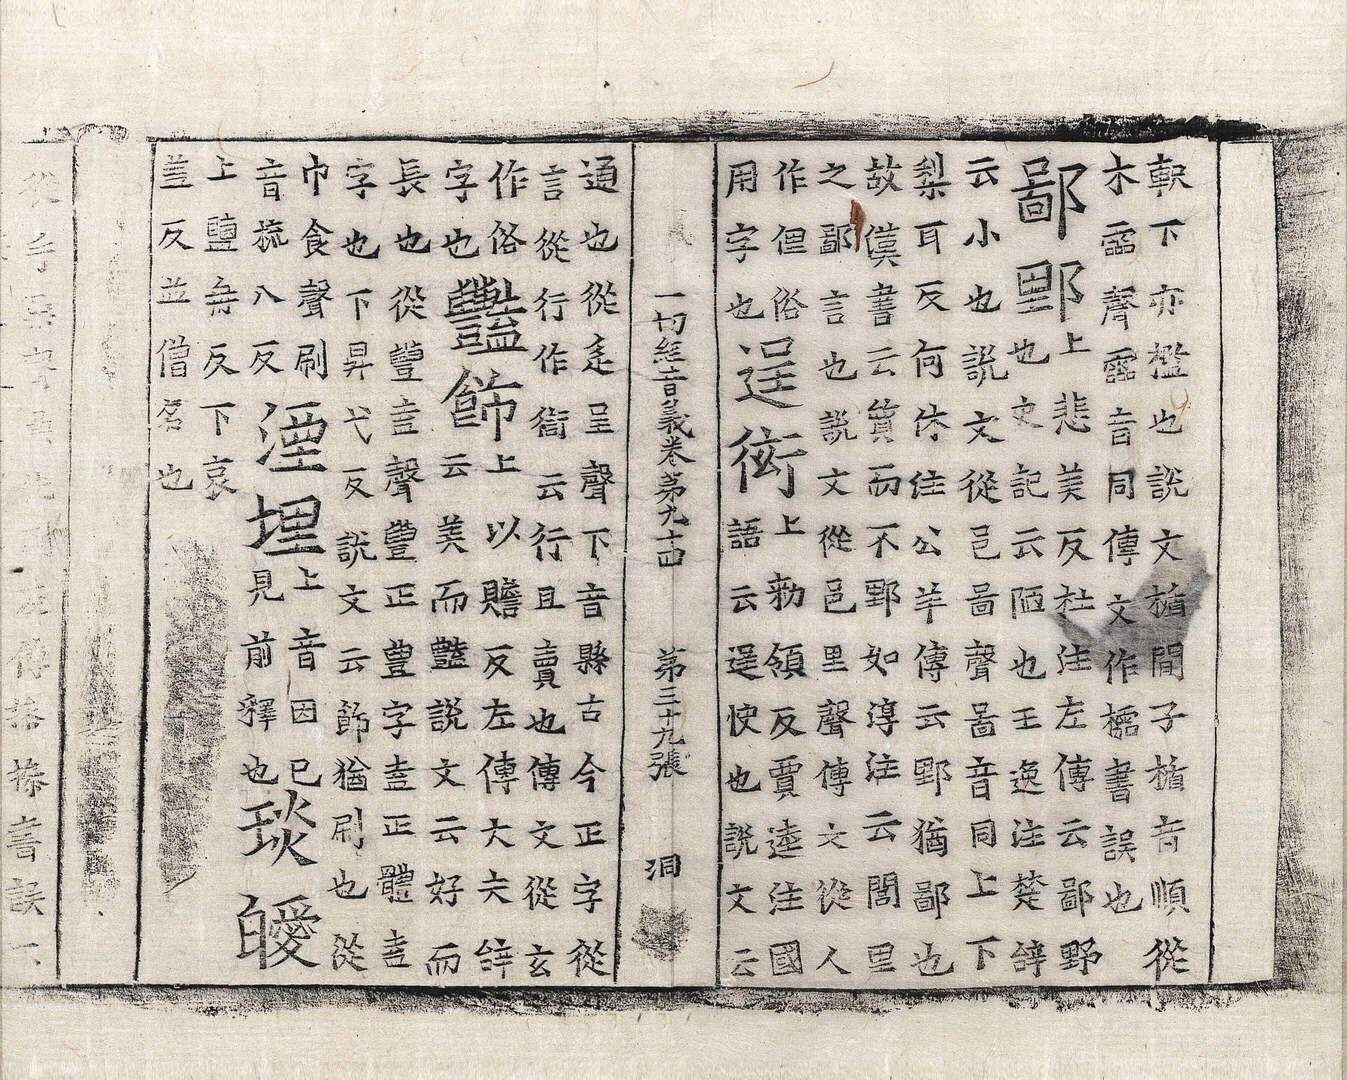 軟下亦檻也說文楯閒子楯音順從
木𤲞聲𤲞音同傳文作櫺書誤也
鄙野上悲美反杜注左傳云鄙野
也史記云陋也王逸注楚辞
云小也說文從邑啚聲啚音同上下
梨耳反何休注公羊傳云野猶鄙也
故漢書云質而不野如淳注云閭里
之鄙言也說文從邑里聲傳文從人
作但俗
用字也
逞衒上勑領反賈逵注國
語云逞快也說文云
一切經音義卷第九十四 第三十九張 洞
通也從辵呈聲下音縣古今正字從
言從行作衒云行且賣也傳文從玄
作俗
字也
豔飾上以贍反左傳大夫辞
云美而豔說文云好而
長也從豐盍聲豐正豊字盍正體盍
字也下昇弋反說文云飾猶刷也從
巾食聲刷
音䟽八反
湮埋上音因已
見前釋也
琰皧
上鹽冉反下哀
盖反並僧名也